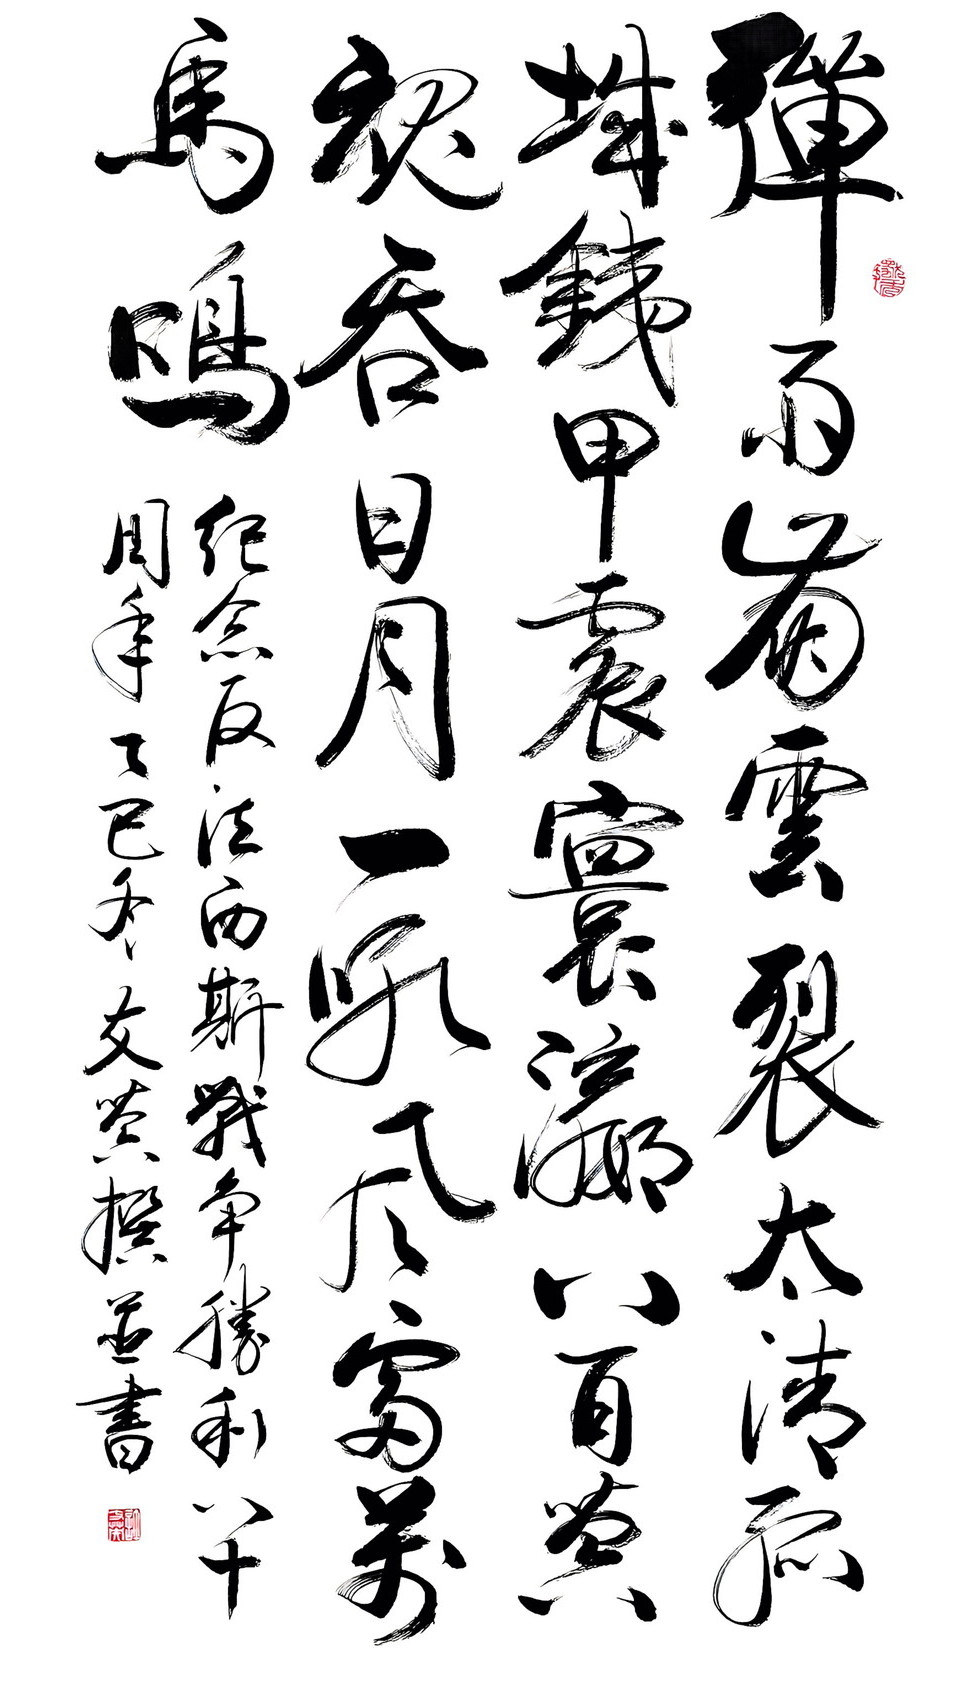 彈雨崩雲裂太清孤
城鐵甲震寰瀛八百英
魂吞日月一吼風雷萬
馬鳴
紀念反法西斯戰爭勝利八十
周年乙巳冬文英撰並書